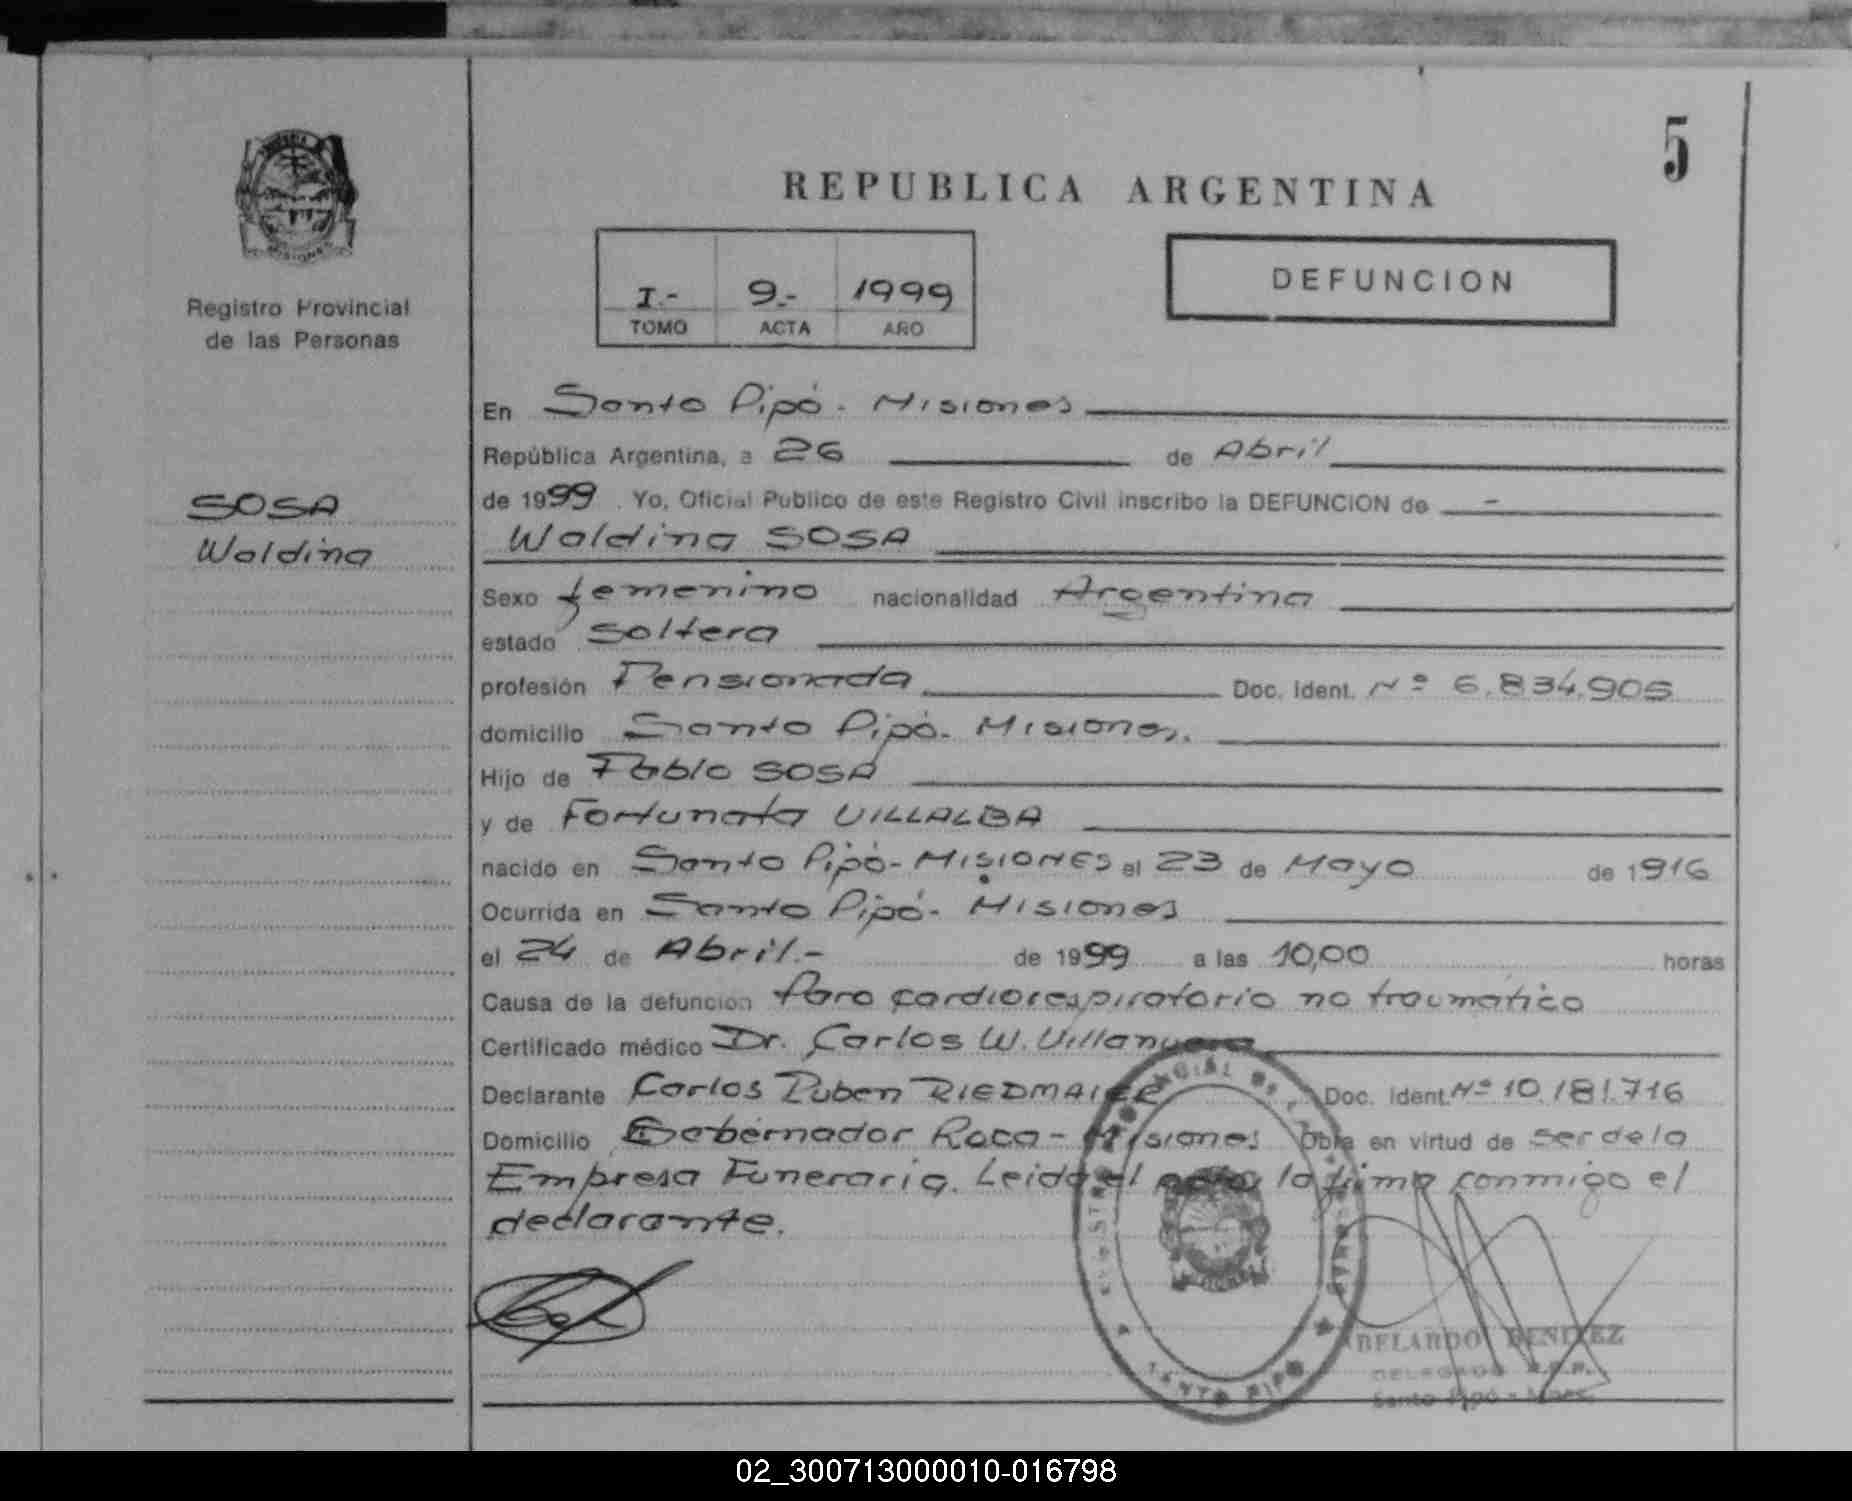 5
REPUBLICA ARGENTINA
DEFUNCION
I.- 9.- 1999
TOMO ACTA AÑO
MISIONES
Registro Provincial
de las Personas
SOSA
Waldina
En Santo Pipó - Misiones
República Argentina, a 26 de Abril
de 1999 . Yo, Oficial Publico de este Registro Civil inscribo la DEFUNCION de -
Waldina SOSA
Sexo femenino nacionalidad Argentina
estado soltera
profesión Pensionada Doc. Ident. Nº 6.834.905
domicilio Santo Pipó - Misiones.
Hijo de Pablo SOSA
y de Fortunata VILLALBA
nacido en Santo Pipó - MISIONES el 23 de Mayo de 1916
Ocurrida en Santo Pipó - Misiones
el 24 de Abril.- de 1999 a las 10,00 horas
Causa de la defuncion Paro cardiorespiratorio no traumático
Certificado médico Dr. Carlos W. Villanueva
Declarante Carlos Ruben RIEDMAIER Doc. Ident. Nº 10.181.716
Domicilio Gobernador Roca - Misiones Obra en virtud de ser de la
Empresa Funeraria. Leida el acta, la firma conmigo el
declarante.
SANTO PIPO
ABELARDO BENITEZ
DELEGADO R.P.P.
Santo Pipó - Mnes.
02_300713000010-016798